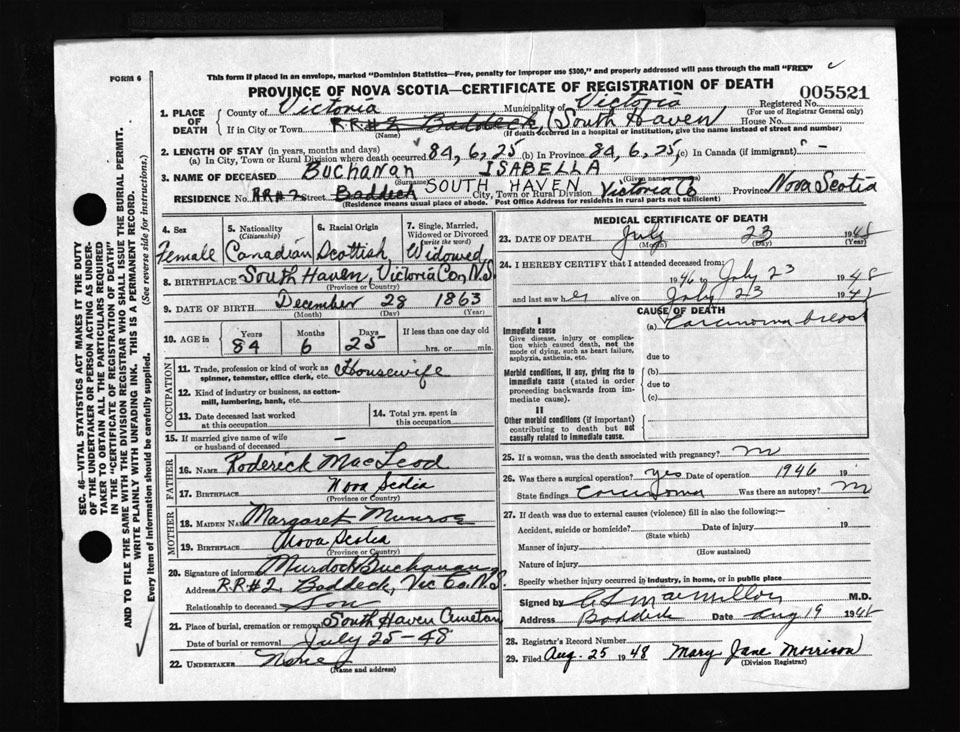 FORM 6
This form if placed in an envelope, marked "Dominion Statistics—Free, penalty for improper use $300," and properly addressed will pass through the mail "FREE"
PROVINCE OF NOVA SCOTIA—CERTIFICATE OF REGISTRATION OF DEATH
005521
1. PLACE OF DEATH
County of Victoria Municipality of Victoria Registered No.
(For use of Registrar General only)
If in City or Town RR#2 Baddeck, (South Haven House No.
(Name) (If death occurred in a hospital or institution, give the name instead of street and number)
2. LENGTH OF STAY (in years, months and days)
(a) In City, Town or Rural Division where death occurred 84, 6, 25 (b) In Province 84, 6, 25 (c) In Canada (if immigrant) " -
3. NAME OF DECEASED Buchanan ISABELLA
(Surname) (Given names)
RESIDENCE No. RR#2 Street Baddeck SOUTH HAVEN City, Town or Rural Division Victoria Co Province Nova Scotia
(Residence means usual place of abode. Post Office Address for residents in rural parts not sufficient)
4. Sex
Female
5. Nationality
(Citizenship)
Canadian
6. Racial Origin
Scottish
7. Single, Married, Widowed or Divorced
(write the word)
Widowed
8. BIRTHPLACE South Haven, Victoria Co, N.S
(Province or Country)
9. DATE OF BIRTH December 28 1863
(Month) (Day) (Year)
10. AGE in Years Months Days If less than one day old
84 6 25 hrs. or min.
OCCUPATION
11. Trade, profession or kind of work as spinner, teamster, office clerk, etc. Housewife
12. Kind of industry or business, as cotton-mill, lumbering, bank, etc.
13. Date deceased last worked at this occupation
14. Total yrs. spent in this occupation
15. If married give name of wife or husband of deceased -
FATHER
16. Name Roderick MacLeod
17. Birthplace Nova Scotia
(Province or Country)
MOTHER
18. Maiden Name Margaret Munroe
19. Birthplace Nova Scotia
(Province or Country)
20. Signature of informant Murdoch Buchanan
Address RR#2 Baddeck, Vic Co. N.S.
Relationship to deceased Son
21. Place of burial, cremation or removal South Haven Cemetary
Date of burial or removal July 25-48
22. UNDERTAKER None
(Name and address)
MEDICAL CERTIFICATE OF DEATH
23. DATE OF DEATH July 23 1948
(Month) (Day) (Year)
24. I HEREBY CERTIFY that I attended deceased from:
1946 to July 23 1948
and last saw her alive on July 23 1948
CAUSE OF DEATH
I
Immediate cause
Give disease, injury or complication which caused death, not the mode of dying, such as heart failure, asphyxia, asthenia, etc.
(a) Carcinoma breast
due to
Morbid conditions, if any, giving rise to immediate cause (stated in order proceeding backwards from immediate cause).
(b)
due to
(c)
II
Other morbid conditions (if important) contributing to death but not causally related to immediate cause.
25. If a woman, was the death associated with pregnancy? no
26. Was there a surgical operation? yes Date of operation 1946 19
State findings Carcinoma Was there an autopsy? no
27. If death was due to external causes (violence) fill in also the following:—
Accident, suicide or homicide? Date of injury 19
(State which)
Manner of injury
(How sustained)
Nature of injury
Specify whether injury occurred in industry, in home, or in public place
Signed by C L MacMillan M.D.
Address Baddeck Date Aug 19 1948
28. Registrar's Record Number
29. Filed Aug. 25 1948 Mary Jane Morrison
(Division Registrar)
SEC. 46—VITAL STATISTICS ACT MAKES IT THE DUTY
OF THE UNDERTAKER OR PERSON ACTING AS UNDERTAKER TO OBTAIN ALL THE PARTICULARS REQUIRED
IN THE "CERTIFICATE OF REGISTRATION OF DEATH"
AND TO FILE THE SAME WITH THE DIVISION REGISTRAR WHO SHALL ISSUE THE BURIAL PERMIT.
WRITE PLAINLY WITH UNFADING INK. THIS IS A PERMANENT RECORD.
Every item of information should be carefully supplied. (See reverse side for instructions.)